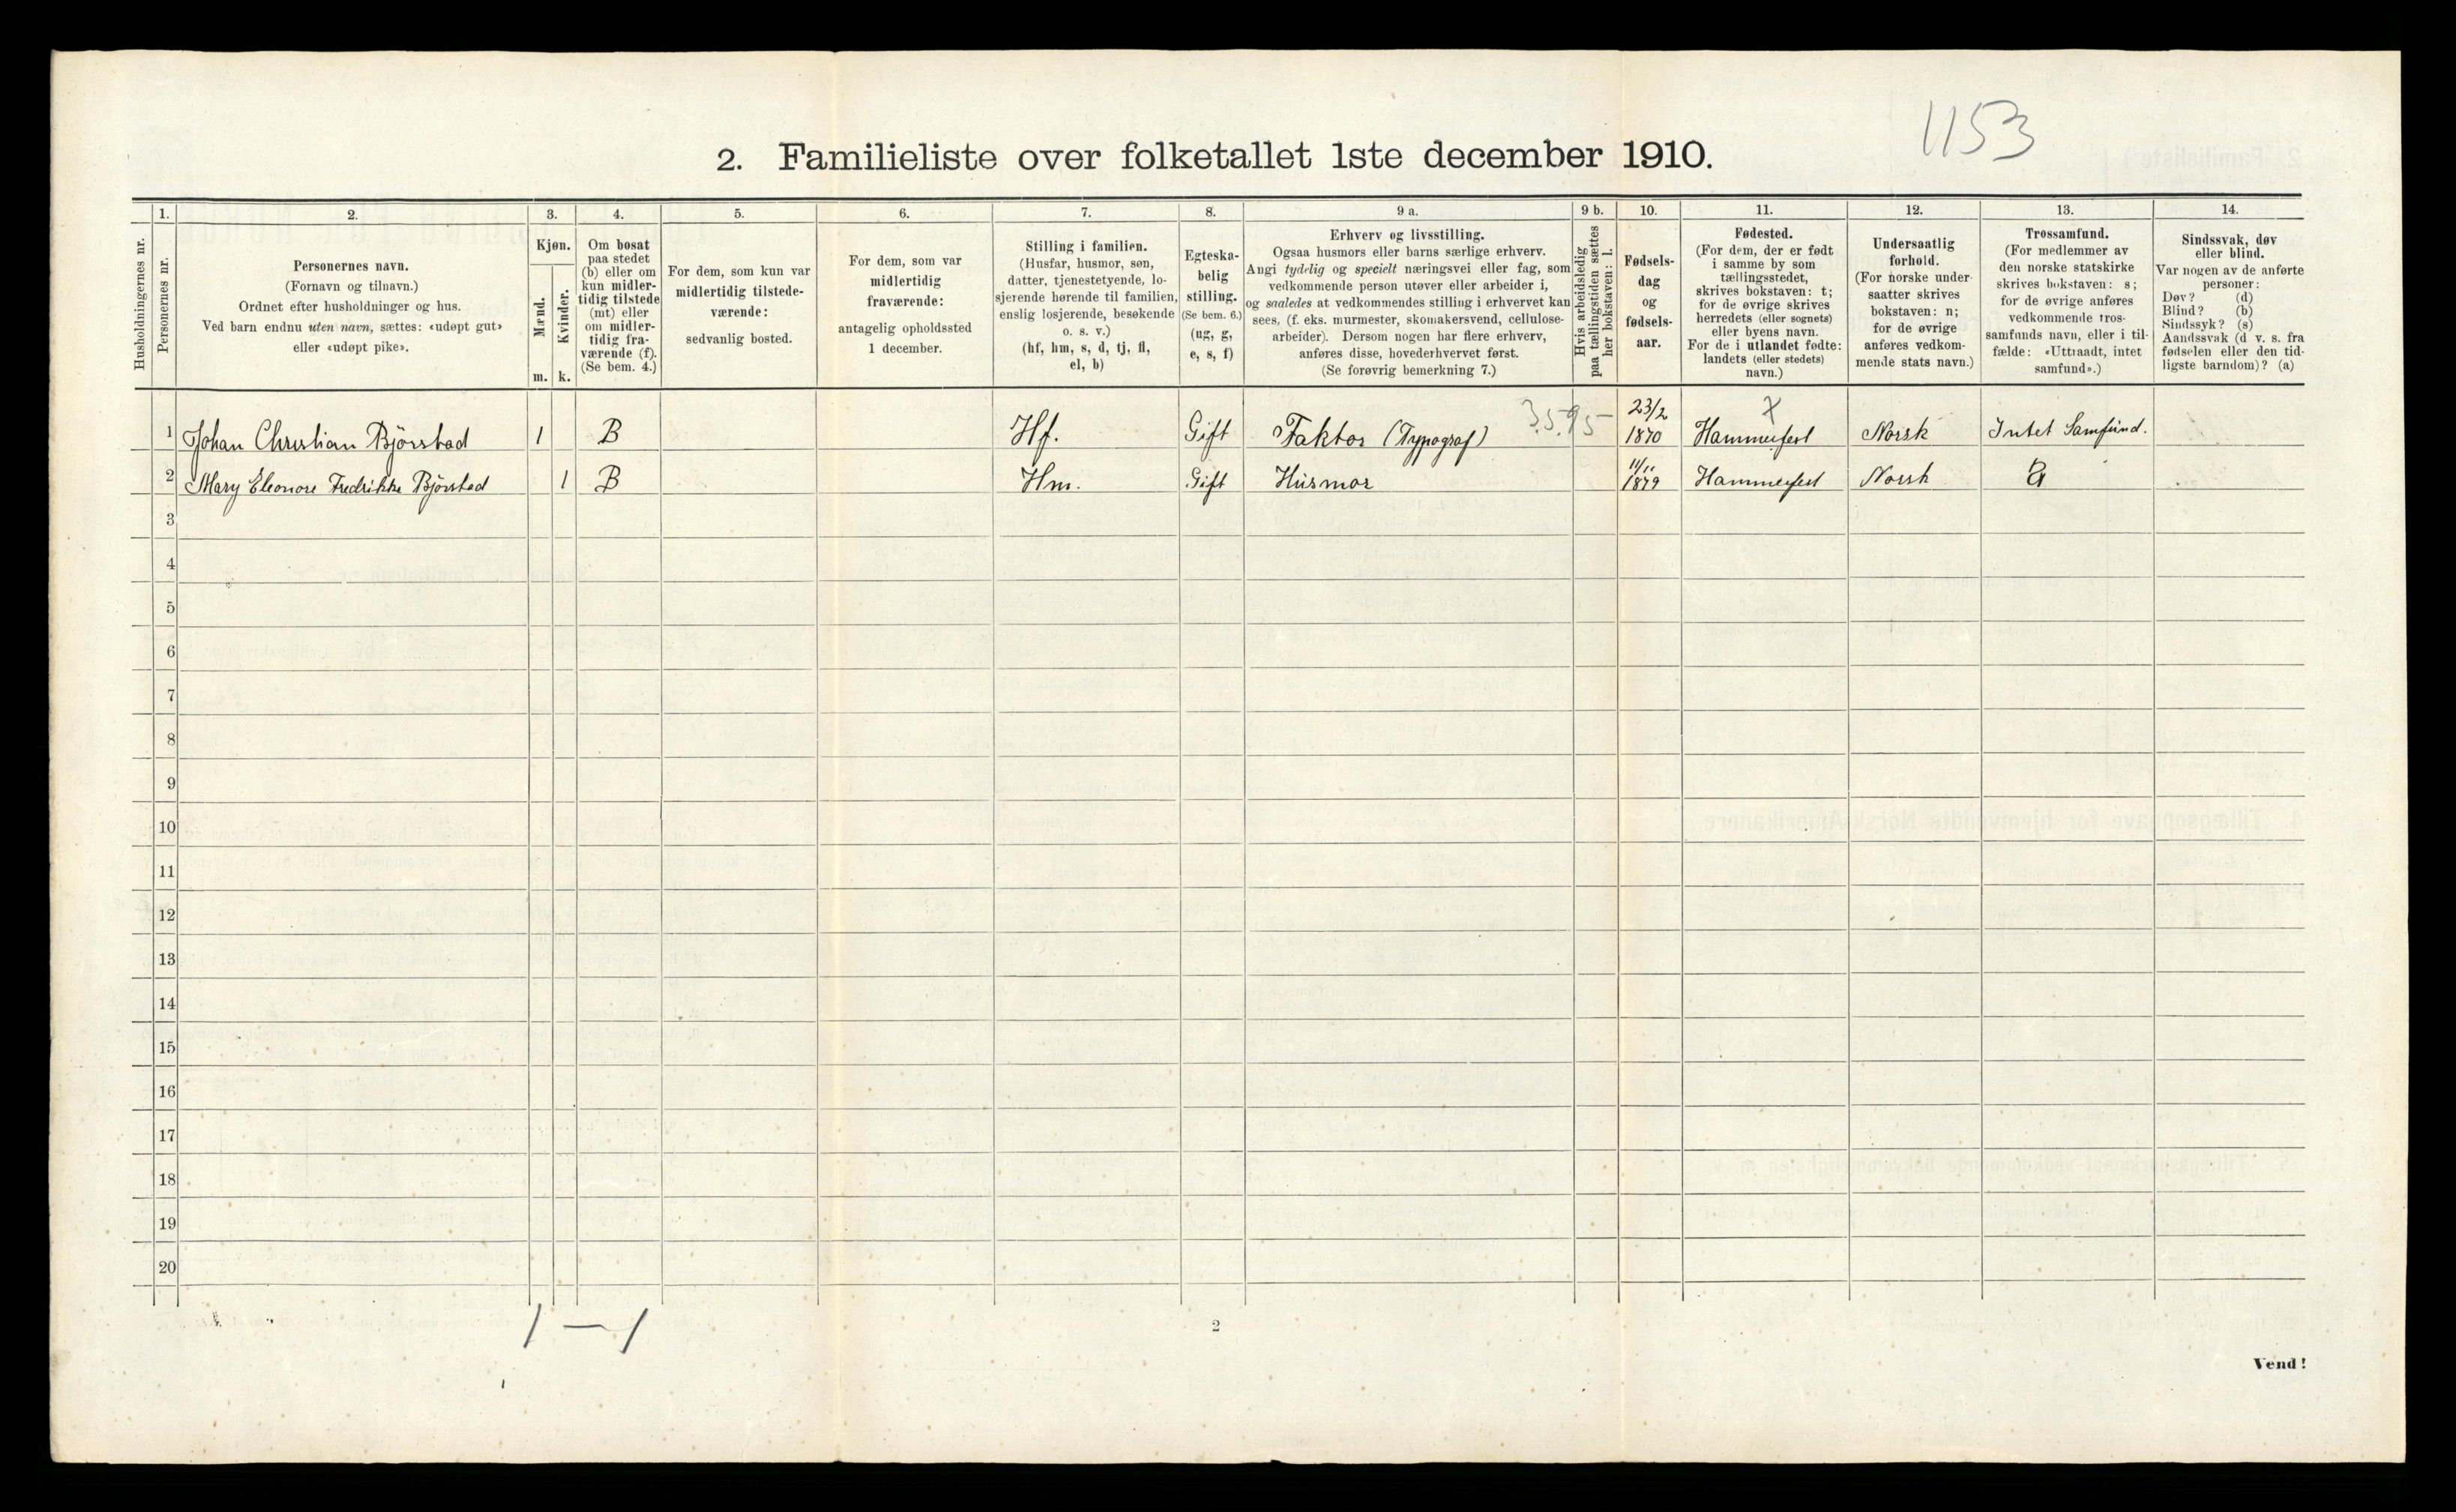 1153
2. Familieliste over folketallet 1ste december 1910.
1. 2. 3. 4. 5. 6. 7. 8. 9 a. 9 b. 10. 11. 12. 13. 14.
Husholdningernes nr.
Personernes nr.
Personernes navn.
(Fornavn og tilnavn.)
Ordnet efter husholdninger og hus.
Ved barn endnu uten navn, sættes: «udøpt gut»
eller «udøpt pike».
Kjøn.
Mænd.
m.
Kvinder.
k.
Om bosat
paa stedet
(b) eller om
kun midler-
tidig tilstede
(mt) eller
om midler-
tidig fra-
værende (f).
(Se bem. 4.)
For dem, som kun var
midlertidig tilstede-
værende:
sedvanlig bosted.
For dem, som var
midlertidig
fraværende:
antagelig opholdssted
1 december.
Stilling i familien.
(Husfar, husmor, søn,
datter, tjenestetyende, lo-
sjerende hørende til familien,
enslig losjerende, besøkende
o. s. v.)
(hf, hm, s, d, tj, fl,
el, b)
Egteska-
belig
stilling.
(Se bem. 6.)
(ug, g,
e, s, f)
Erhverv og livsstilling.
Ogsaa husmors eller barns særlige erhverv.
Angi tydelig og specielt næringsvei eller fag, som
vedkommende person utøver eller arbeider i,
og saaledes at vedkommendes stilling i erhvervet kan
sees, (f. eks. murmester, skomakersvend, cellulose-
arbeider). Dersom nogen har flere erhverv,
anføres disse, hovederhvervet først.
(Se forøvrig bemerkning 7.)
Hvis arbeidsledig
paa tællingstiden sættes
her bokstaven: l.
Fødsels-
dag
og
fødsels-
aar.
Fødested.
(For dem, der er født
i samme by som
tællingsstedet,
skrives bokstaven: t;
for de øvrige skrives
herredets (eller sognets)
eller byens navn.
For de i utlandet fødte:
landets (eller stedets)
navn.)
Undersaatlig
forhold.
(For norske under-
saatter skrives
bokstaven: n;
for de øvrige
anføres vedkom-
mende stats navn.)
Trossamfund.
(For medlemmer av
den norske statskirke
skrives bokstaven: s;
for de øvrige anføres
vedkommende tros-
samfunds navn, eller i til-
fælde: «Uttraadt, intet
samfund».)
Sindssvak, døv
eller blind.
Var nogen av de anførte
personer:
Døv? (d)
Blind? (b)
Sindssyk? (s)
Aandssvak (d. v. s. fra
fødselen eller den tid-
ligste barndom)? (a)
1 Johan Christian Björstad 1 B Hf. Gift Faktor (Typograf) 23/2 1870 Hammerfest Norsk Intet Samfund.
2 Mary Eleonore Fredrikke Björstad 1 B Hm. Gift Husmor 11/11 1879 Hammerfest Norsk
3
4
5
6
7
8
9
10
11
12
13
14
15
16
17
18
19
20
1 — 1
2
Vend!